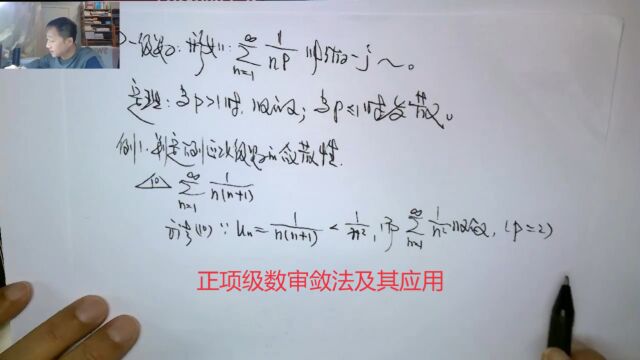 P-级数:形如: \sum_{n=1}^{\infty} \frac{1}{n^p} 的
定理:当p>1时,收敛;当p≤1时发散。
例1.判定下列正项级数的敛散性.
(1) \sum_{n=1}^{\infty} \frac{1}{n(n+1)}
(1) ∵ u_n = \frac{1}{n(n+1)} < \frac{1}{n^2}, 而 \sum_{n=1}^{\infty} \frac{1}{n^2} 收敛, (p=2)
正项级数审敛法及其应用